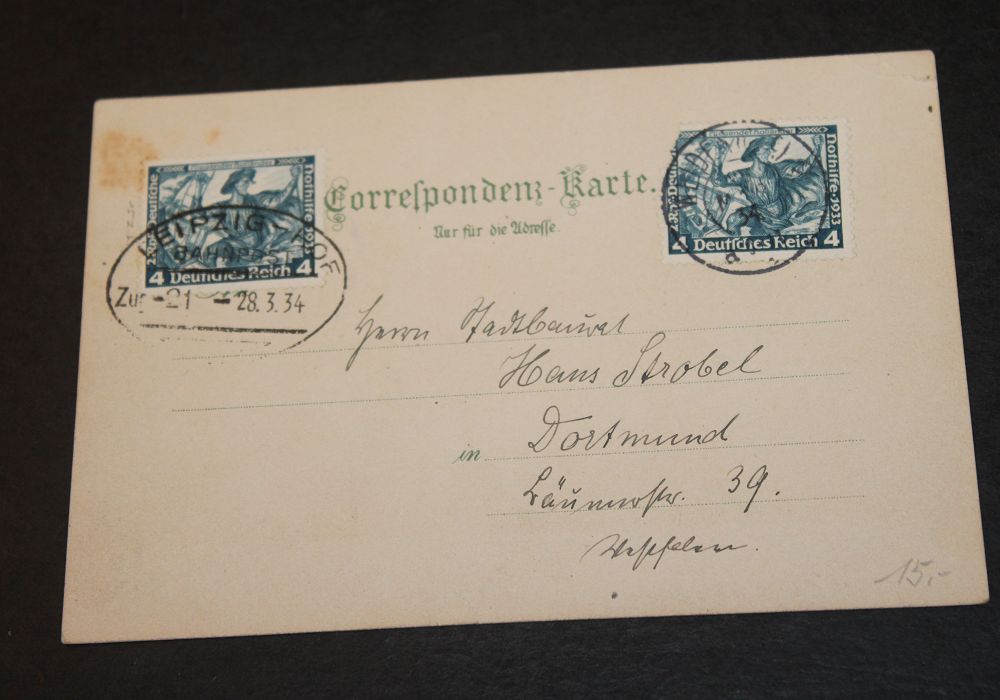 Correspondenz-Karte.
Nur für die Adresse.
Nothilfe 1933
4 Deutsches Reich 4
LEIPZIG - HOF
BAHNPOST
Zug 21 - 28.3.34
Der fliegende Holländer
Nothilfe 1933
4 Deutsches Reich 4
34
Herrn Stadtbaurat
Hans Strobel
in Dortmund
39.
Westfalen.
15,-